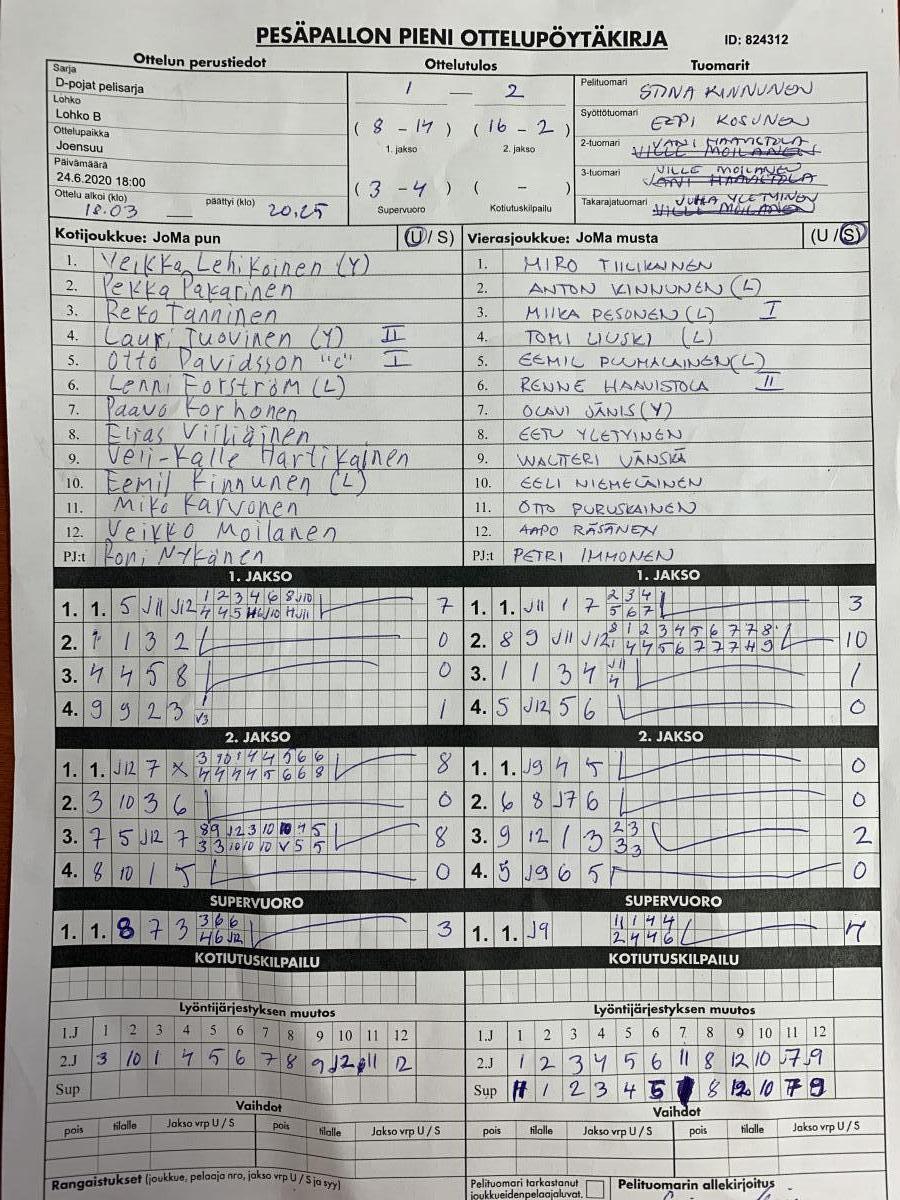 PESÄPALLON PIENI OTTELUPÖYTÄKIRJA ID: 824312
Ottelun perustiedot Ottelutulos Tuomarit
Sarja
D-pojat pelisarja
Lohko
Lohko B
Ottelupaikka
Joensuu
Päivämäärä
24.6.2020 18:00
Ottelu alkoi (klo) päättyi (klo)
18.03 20.25
1 — 2
( 8 - 14 ) ( 16 - 2 )
1. jakso 2. jakso
( 3 - 4 ) ( - )
Supervuoro Kotiutuskilpailu
Pelituomari STINA KINNUNEN
Syöttötuomari EEPI KOSUNEN
2-tuomari JANI HAAVISTOLA
VILLE MOILANEN
3-tuomari VILLE MOILANEN
JANI HAAVISTOLA
Takarajatuomari JUHA YLETYINEN
VILLE MOILANEN
Kotijoukkue: JoMa pun (U / S) Vierasjoukkue: JoMa musta (U / S)
1. Veikka Lehikoinen (Y) 1. MIRO TIILIKAINEN
2. Pekka Pakarinen 2. ANTON KINNUNEN (L)
3. Reko Tanninen 3. MIIKA PESONEN (L) I
4. Lauri Tuovinen (Y) II 4. TOMI LIUSKI (L)
5. Otto Davidsson "c" I 5. EEMIL PUUMALAINEN (L)
6. Lenni Forström (L) 6. RENNE HAAVISTOLA II
7. Paavo Korhonen 7. OLAVI JÄNIS (Y)
8. Elias Viiliäinen 8. EETU YLETYINEN
9. Veli-Kalle Hartikainen 9. WALTTERI VÄNSKÄ
10. Eemil Kinnunen (L) 10. EELI NIEMELÄINEN
11. Miko Karvonen 11. OTTO PURUSKAINEN
12. Veikko Moilanen 12. AAPO RÄSÄNEN
PJ:t Roni Nykänen PJ:t PETRI IMMONEN
1. JAKSO 1. JAKSO
1. 1. 5 J11 J12 7 1. 1. J11 1 7 2 3 4 3
5 6 7
2. 1 1 3 2 0 2. 8 9 J11 J12 10
3. 4 4 5 8 0 3. 1 1 3 4 J11 1
4
4. 9 9 2 3 1 4. 5 J12 5 6 0
2. JAKSO 2. JAKSO
1. 1. J12 7 X 3 10 1 4 4 5 6 6 8 1. 1. J9 4 5 0
4 4 4 4 5 6 6 8
2. 3 10 3 6 0 2. 6 8 J7 6 0
3. 7 5 J12 7 8 3. 9 12 1 3 2 3 2
3 3
4. 8 10 1 5 0 4. 5 J9 6 5 0
SUPERVUORO SUPERVUORO
1. 1. 8 7 3 3 6 6 3 1. 1. J9 1 1 4 4 4
4 6 J12 2 4 4 6
KOTIUTUSKILPAILU KOTIUTUSKILPAILU
Lyöntijärjestyksen muutos Lyöntijärjestyksen muutos
1.J 1 2 3 4 5 6 7 8 9 10 11 12 1.J 1 2 3 4 5 6 7 8 9 10 11 12
2.J 3 10 1 4 5 6 7 8 9 J2 11 12 2.J 1 2 3 4 5 6 11 8 12 10 J7 J9
Sup Sup 11 1 2 3 4 5 8 12 10 7 9
Vaihdot Vaihdot
pois tilalle Jakso vrp U / S pois tilalle Jakso vrp U / S pois tilalle Jakso vrp U / S pois tilalle Jakso vrp U / S
Rangaistukset (joukkue, pelaaja nro, jakso vrp U / S ja syy) Pelituomari tarkastanut Pelituomarin allekirjoitus
joukkueidenpelaajaluvat.